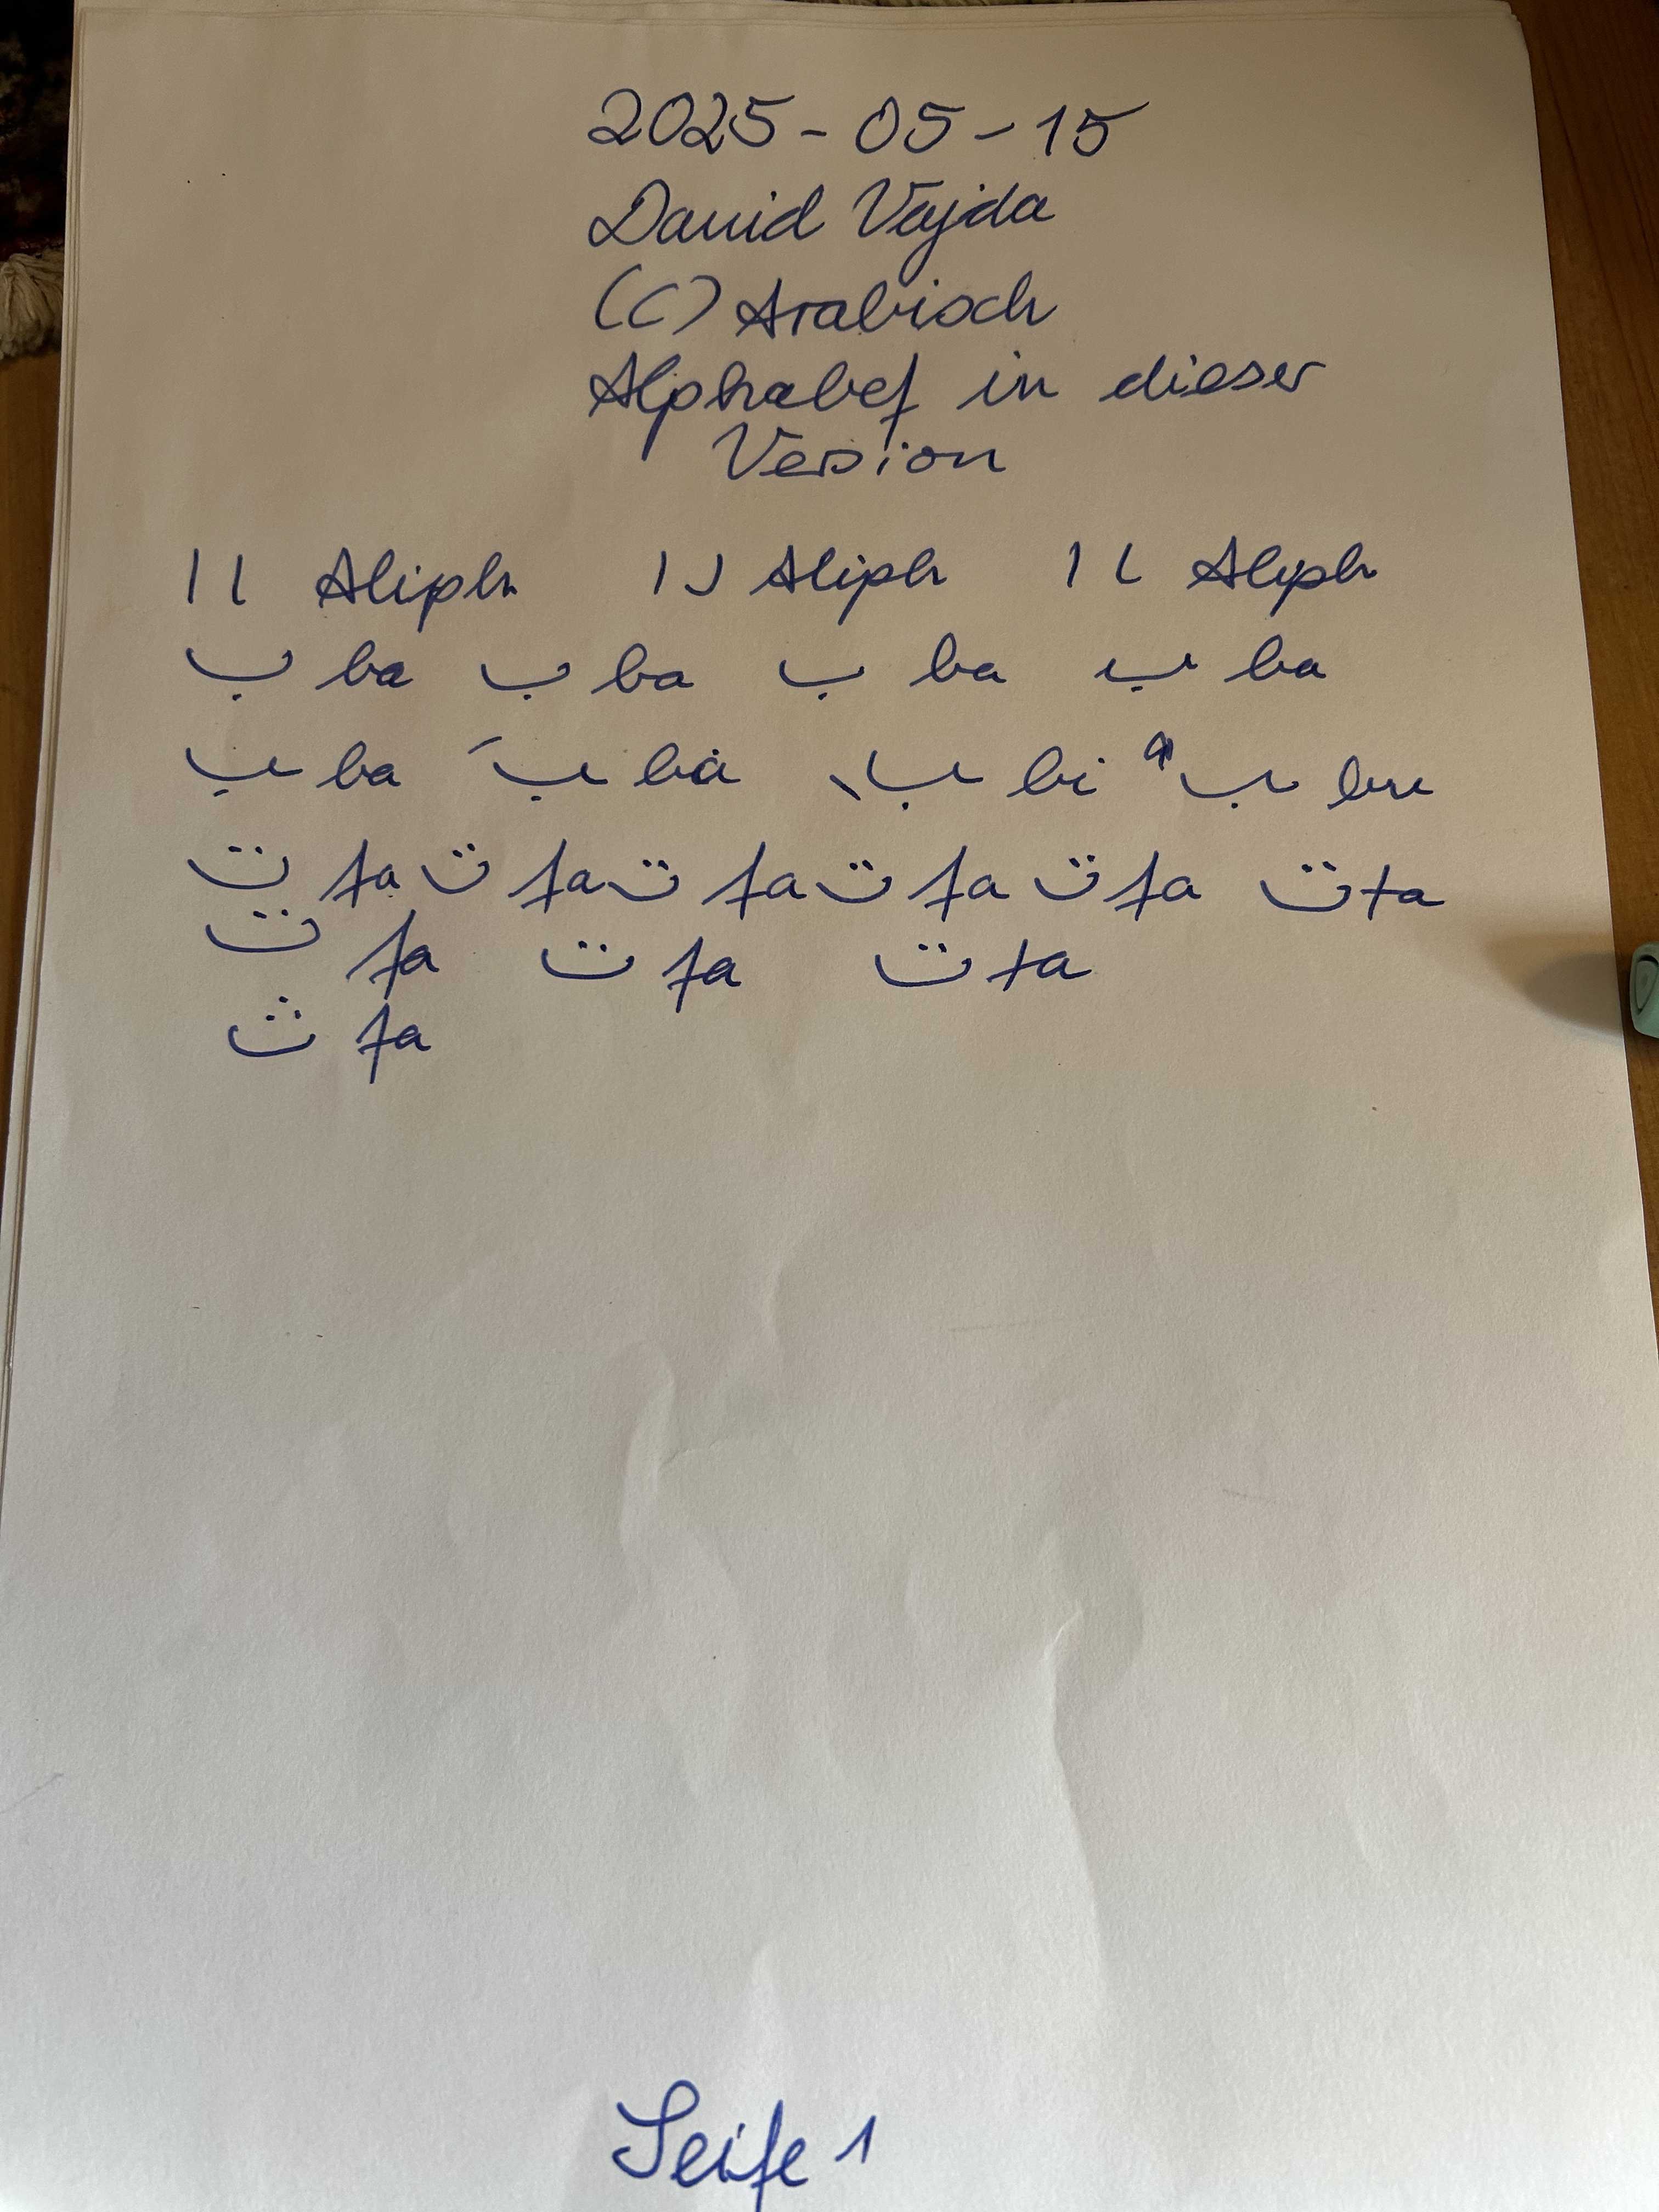 2025-05-15
David Vajda
(C) Arabisch
Alphabet in dieser
Version
ا ا Aliph ا ا Aliph ا ا Aliph
ب ba ب ba ب ba ب ba
ب ba بَ ba بِ bi بُ bu
ت ta ت ta ت ta ت ta ت ta ت ta
ت ta ت ta ت ta
ت ta
Seite 1